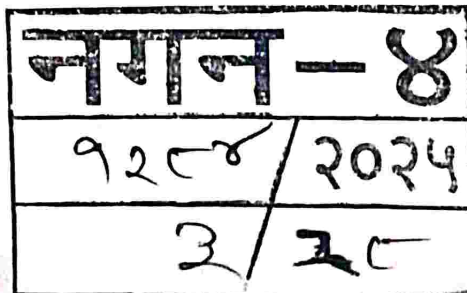 नगन-४
१२८४/२०२५
३/३८